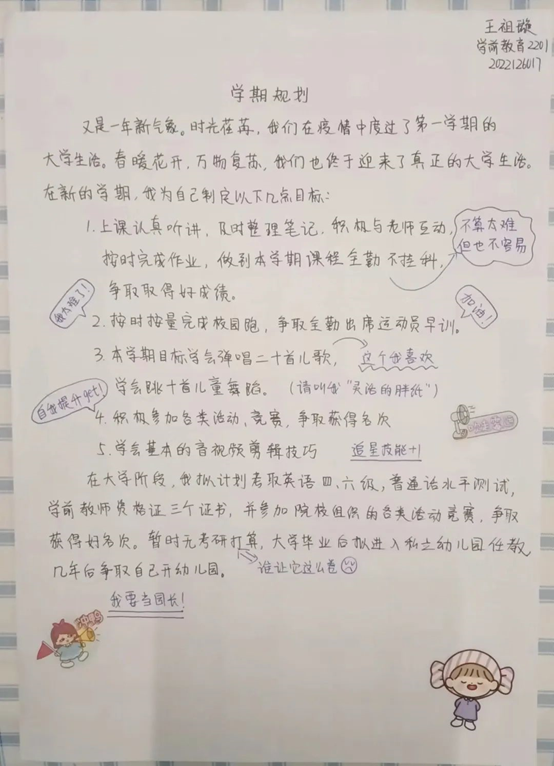 王祖璇
学前教育2201
2022126017
学期规划
又是一年新气象。时光荏苒，我们在疫情中度过了第一学期的
大学生活。春暖花开，万物复苏，我们也终于迎来了真正的大学生活。
在新的学期，我为自己制定以下几点目标：
1.上课认真听讲，及时整理笔记，积极与老师互动，
不算太难
但也不容易
按时完成作业，做到本学期课程全勤不挂科，
争取取得好成绩。
太难了！
加油！
2.按时按量完成校园跑，争取全勤出席运动员早训。
3.本学期目标学会弹唱二十首儿歌，
这个我喜欢
学会跳十首儿童舞蹈。（请叫我“灵活的胖纸”）
自我提升get！
4.积极参加各类活动、竞赛，争取获得名次
5.学会基本的音视频剪辑技巧
追星技能+1
在大学阶段，我拟计划考取英语四、六级，普通话水平测试，
学前教师资格证三个证书，并参加院校组织的各类活动竞赛，争取
获得好名次。暂时无考研打算，大学毕业后拟进入私立幼儿园任教，
几年后争取自己开幼儿园。
谁让它这么卷
我要当园长！